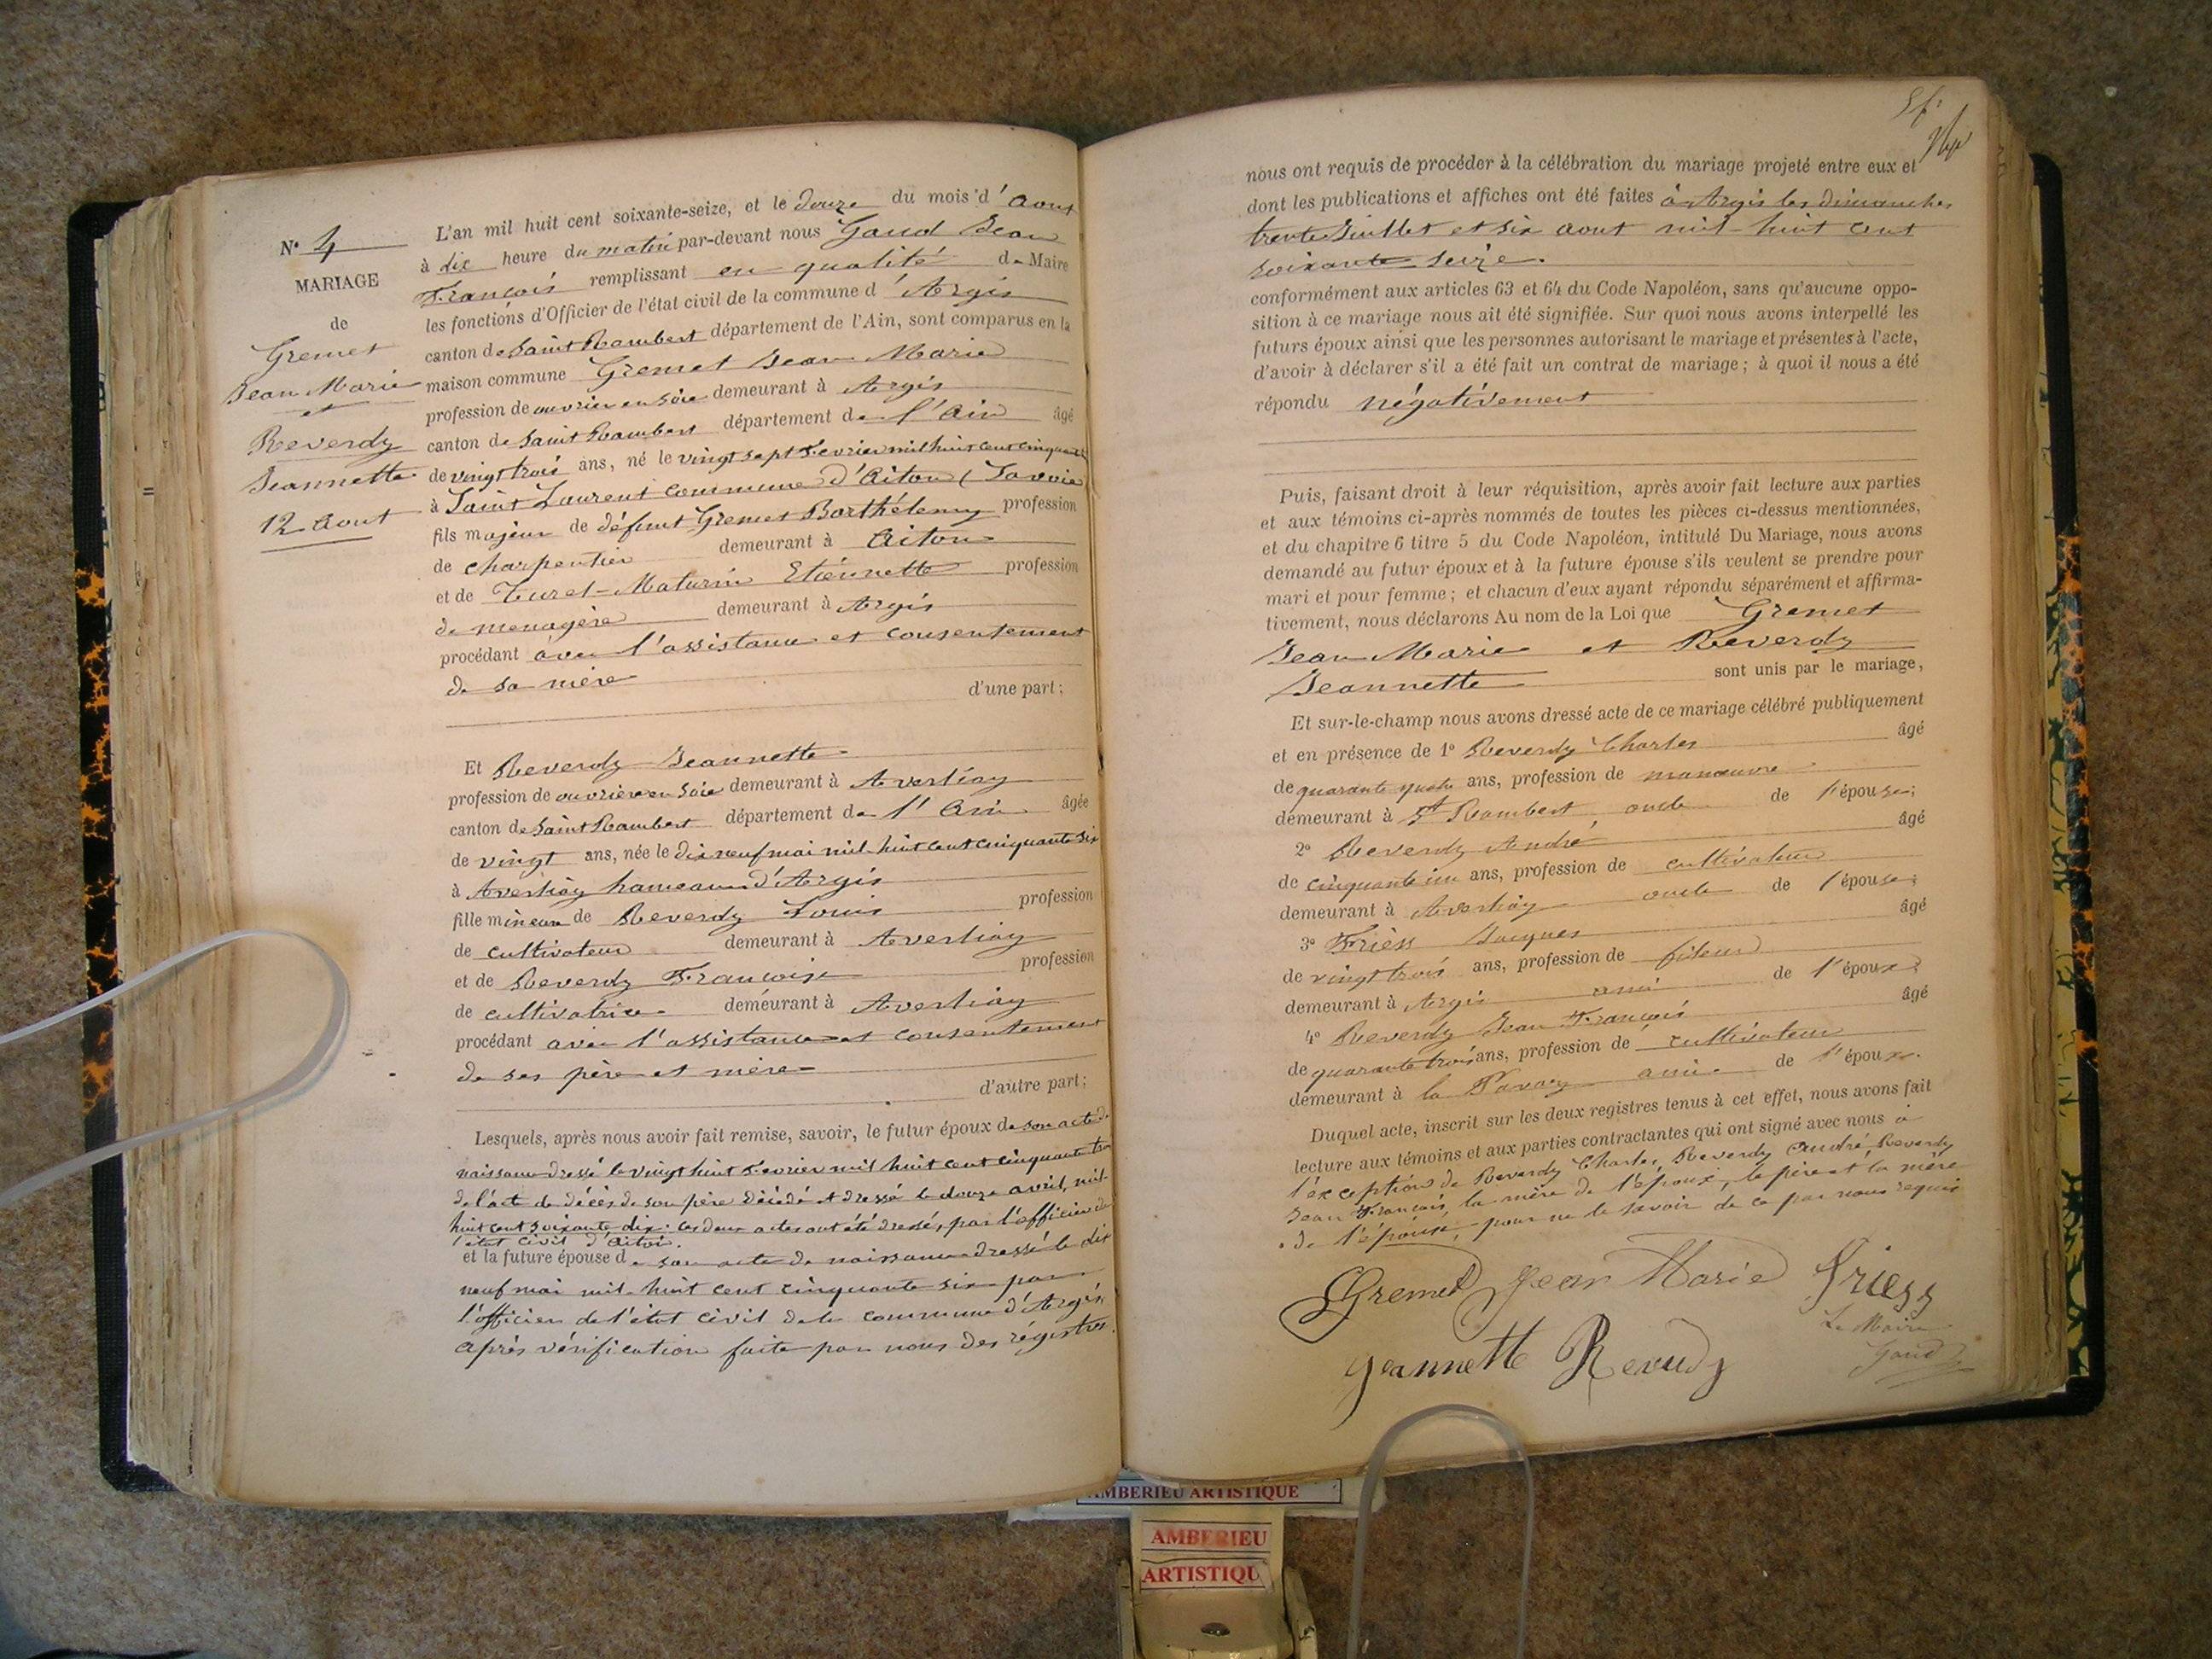 N° 4
MARIAGE
de
Gremet
Jean Marie
et
Reverdy
Jeannette
12 Aout
L'an mil huit cent soixante-seize, et le douze du mois d'Aout
à dix heure du matin par-devant nous Gaud Jean
François remplissant en qualité de Maire
les fonctions d'Officier de l'état civil de la commune d'Argis
canton de Saint Rambert département de l'Ain, sont comparus en la
maison commune Gremet Jean Marie
profession de ouvrier en soie demeurant à Argis
canton de Saint Rambert département de l'Ain âgé
de vingt trois ans, né le vingt sept Fevrier mil huit cent cinquante
à Saint Laurent commune d'Aiton (Savoie
fils majeur de défunt Gremet Barthélemy profession
de charpentier demeurant à Aiton
et de Turet-Maturin Etiennette profession
de menagère demeurant à Argis
procédant avec l'assistance et consentement
de sa mère
d'une part;
Et Reverdy Jeannette
profession de ouvrière en soie demeurant à Averliay
canton de Saint Rambert département de l'Ain âgée
de vingt ans, née le dix neuf mai mil huit cent cinquante six
à Averliay hameau d'Argis
fille mineure de Reverdy Louis profession
de cultivateur demeurant à Averliay
et de Reverdy Françoise profession
de cultivatrice demeurant à Averliay
procédant avec l'assistance et consentement
de ses père et mère
d'autre part;
Lesquels, après nous avoir fait remise, savoir, le futur époux de son acte de
naissance dressé le vingt huit Fevrier mil huit cent cinquante trois
de l'act de décès de son père décédé et dressé le douze avril mil
huit cent soixante dix: ces deux actes ont été dressé, par l'officier de
l'état civil d'Aiton.
et la future épouse de son acte de naissance dressé le dix
neuf mai mil huit cent cinquante six par
l'officier de l'état civil de la commune d'Argis
après vérification faite par nous des régistres.
nous ont requis de procéder à la célébration du mariage projeté entre eux et
dont les publications et affiches ont été faites à Argis les dimanches
trente Juillet et six aout mil huit cent
soixante seize.
conformément aux articles 63 et 64 du Code Napoléon, sans qu'aucune oppo-
sition à ce mariage nous ait été signifiée. Sur quoi nous avons interpellé les
futurs époux ainsi que les personnes autorisant le mariage et présentes à l'acte,
d'avoir à déclarer s'il a été fait un contrat de mariage; à quoi il nous a été
répondu négativement
Puis, faisant droit à leur réquisition, après avoir fait lecture aux parties
et aux témoins ci-après nommés de toutes les pièces ci-dessus mentionnées,
et du chapitre 6 titre 5 du Code Napoléon, intitulé Du Mariage, nous avons
demandé au futur époux et à la future épouse s'ils veulent se prendre pour
mari et pour femme; et chacun d'eux ayant répondu séparément et affirma-
tivement, nous déclarons Au nom de la Loi que Gremet
Jean Marie et Reverdy
Jeannette sont unis par le mariage,
Et sur-le-champ nous avons dressé acte de ce mariage célébré publiquement
et en présence de 1° Reverdy Charles âgé
de quarante quatre ans, profession de manœuvre
demeurant à St Rambert oncle de l'épouse;
2° Reverdy André âgé
de cinquante un ans, profession de cultivateur
demeurant à Averliay oncle de l'épouse;
3° Friess Jacques âgé
de vingt trois ans, profession de fileur
demeurant à Argis ami de l'époux;
4° Reverdy Jean François âgé
de quarante trois ans, profession de cultivateur
demeurant à la ami de l'époux.
Duquel acte, inscrit sur les deux registres tenus à cet effet, nous avons fait
lecture aux témoins et aux parties contractantes qui ont signé avec nous à
l'exception de Reverdy Charles, Reverdy André, Reverdy
Jean François, la mère de l'époux, le père et la mère
de l'épouse, pour ne le savoir de ce par nous requis
Gremet Jean Marie Friess
Le Maire
Gaud
Jeannette Reverdy
AMBERIEU ARTISTIQUE
AMBERIEU
ARTISTIQU